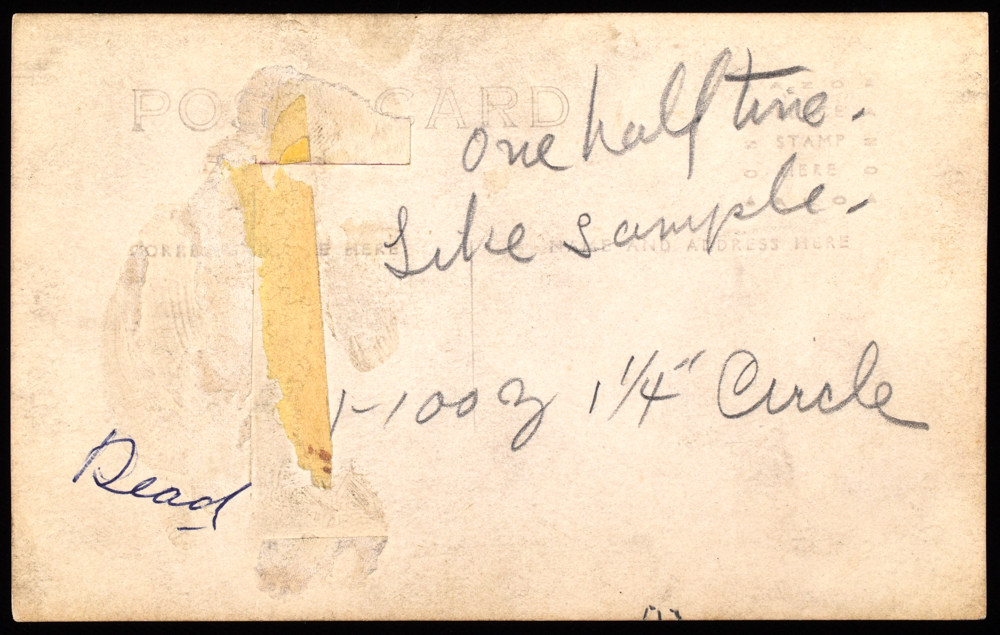 POST CARD
One half tone.
Like sample.
STAMP
HERE
CORRESPONDENCE HERE
NAME AND ADDRESS HERE
1-100 1 1/4" Circle
Dead